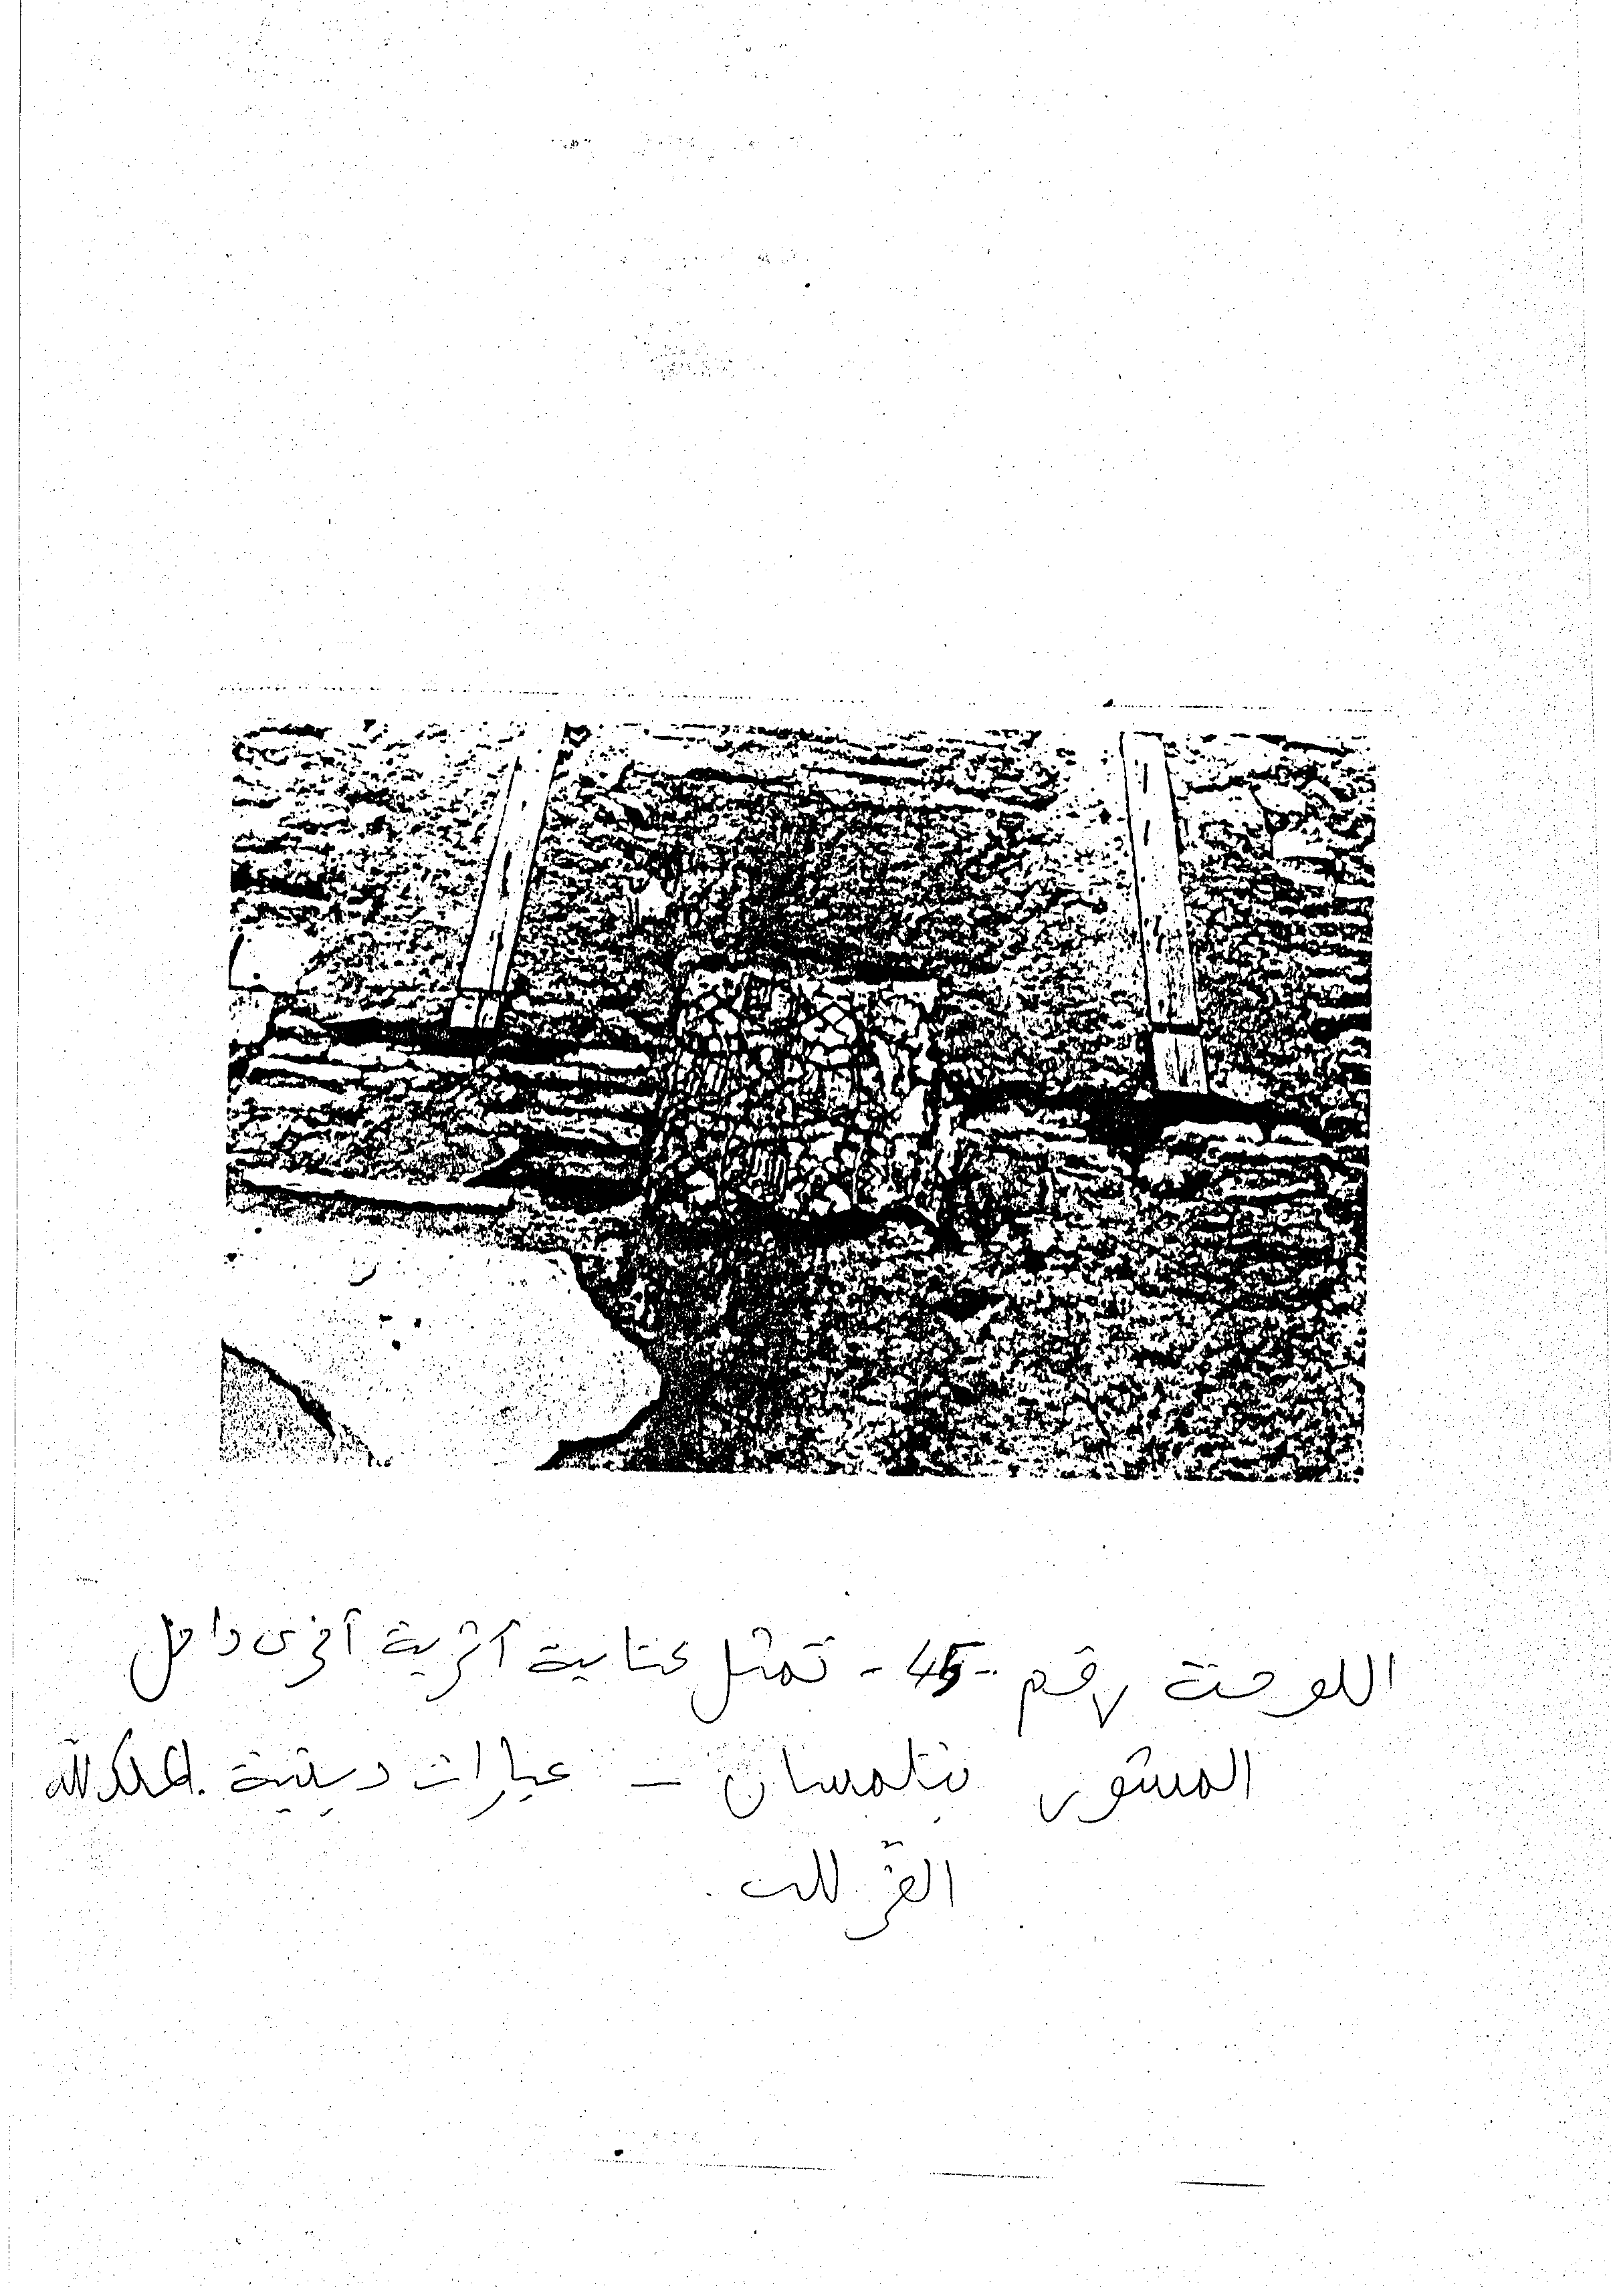 اللوحة رقم -45- تمثل كتابة أثرية أخرى داخل
المشور بتلمسان - عبارات دينية . الملك لله
العز لله .